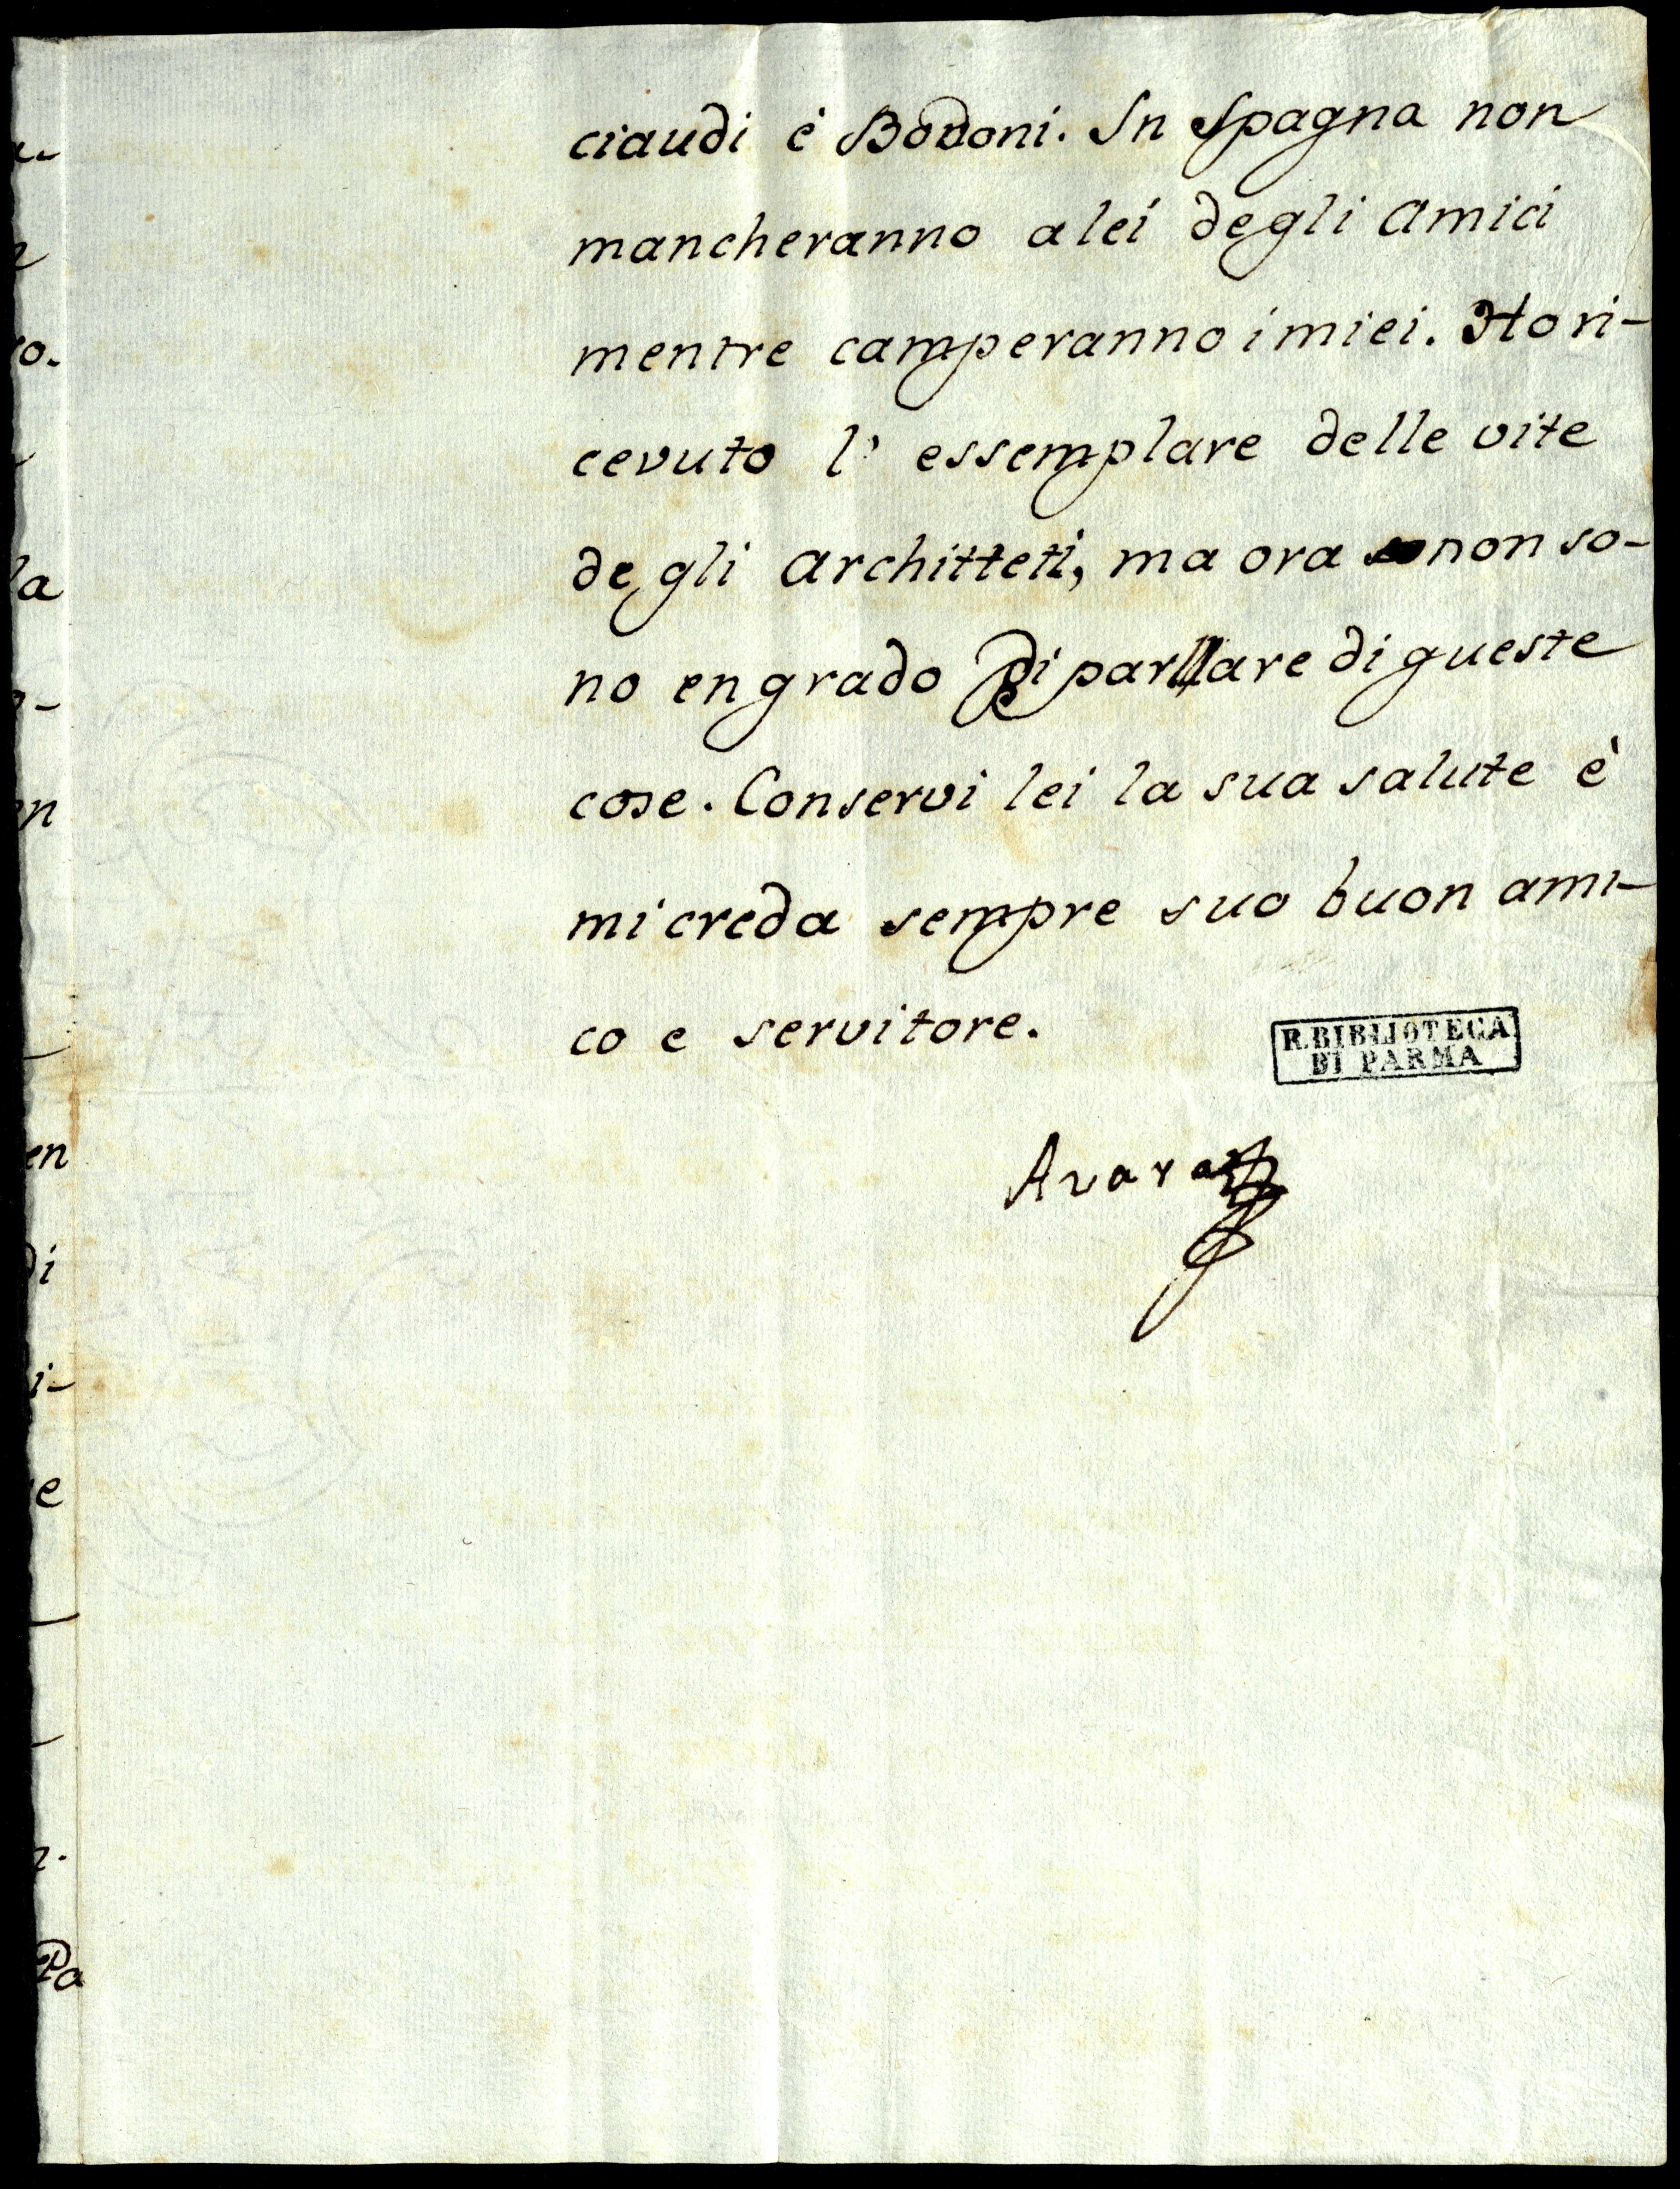 ciaudi è Bodoni. In Spagna non
mancheranno a lei degli amici
mentre camperanno i miei. Ho ri-
cevuto l' essemplare delle vite
degli architteti, ma ora non so-
no en grado di parllare di queste
cose. Conservi lei la sua salute è
mi creda sempre suo buon ami-
co e servitore.
R. BIBLIOTECA
DI PARMA
Azara
ro.
la
on
en
di
i-
e
Pa